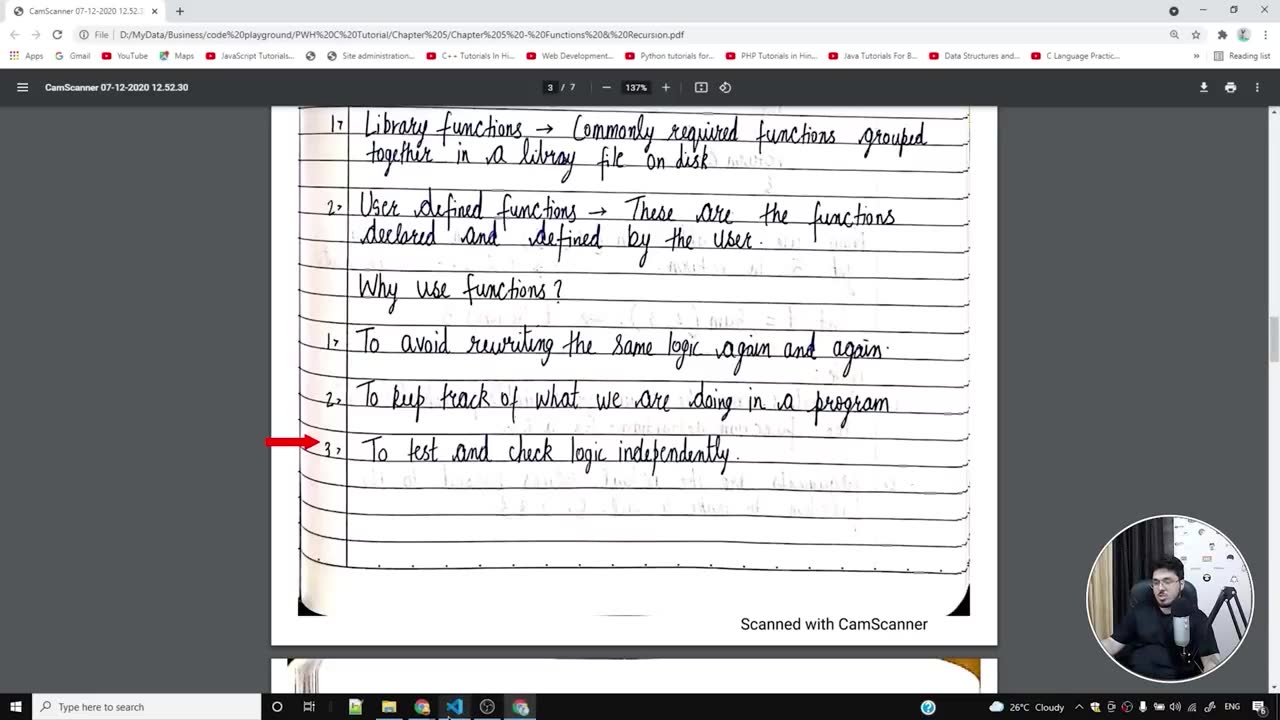 CamScanner 07-12-2020 12.52.3
File D:/MyData/Business/code%20playground/PWH%20C%20Tutorial/Chapter%205/Chapter%205%20-%20Functions%20&%20Recursion.pdf
Apps Gmail YouTube Maps JavaScript Tutorials... Site administration... C++ Tutorials In Hi... Web Development... Python tutorials for... PHP Tutorials in Hin... Java Tutorials For B... Data Structures and... C Language Practic... » Reading list
CamScanner 07-12-2020 12.52.30 3 / 7 137%
1> Library functions → Commonly required functions grouped
together in a libray file on disk
2> User defined functions → These are the functions
declared and defined by the user.
Why use functions?
1> To avoid rewriting the same logic again and again.
2> To keep track of what we are doing in a program
3> To test and check logic independently.
Scanned with CamScanner
Type here to search
26°C Cloudy ENG